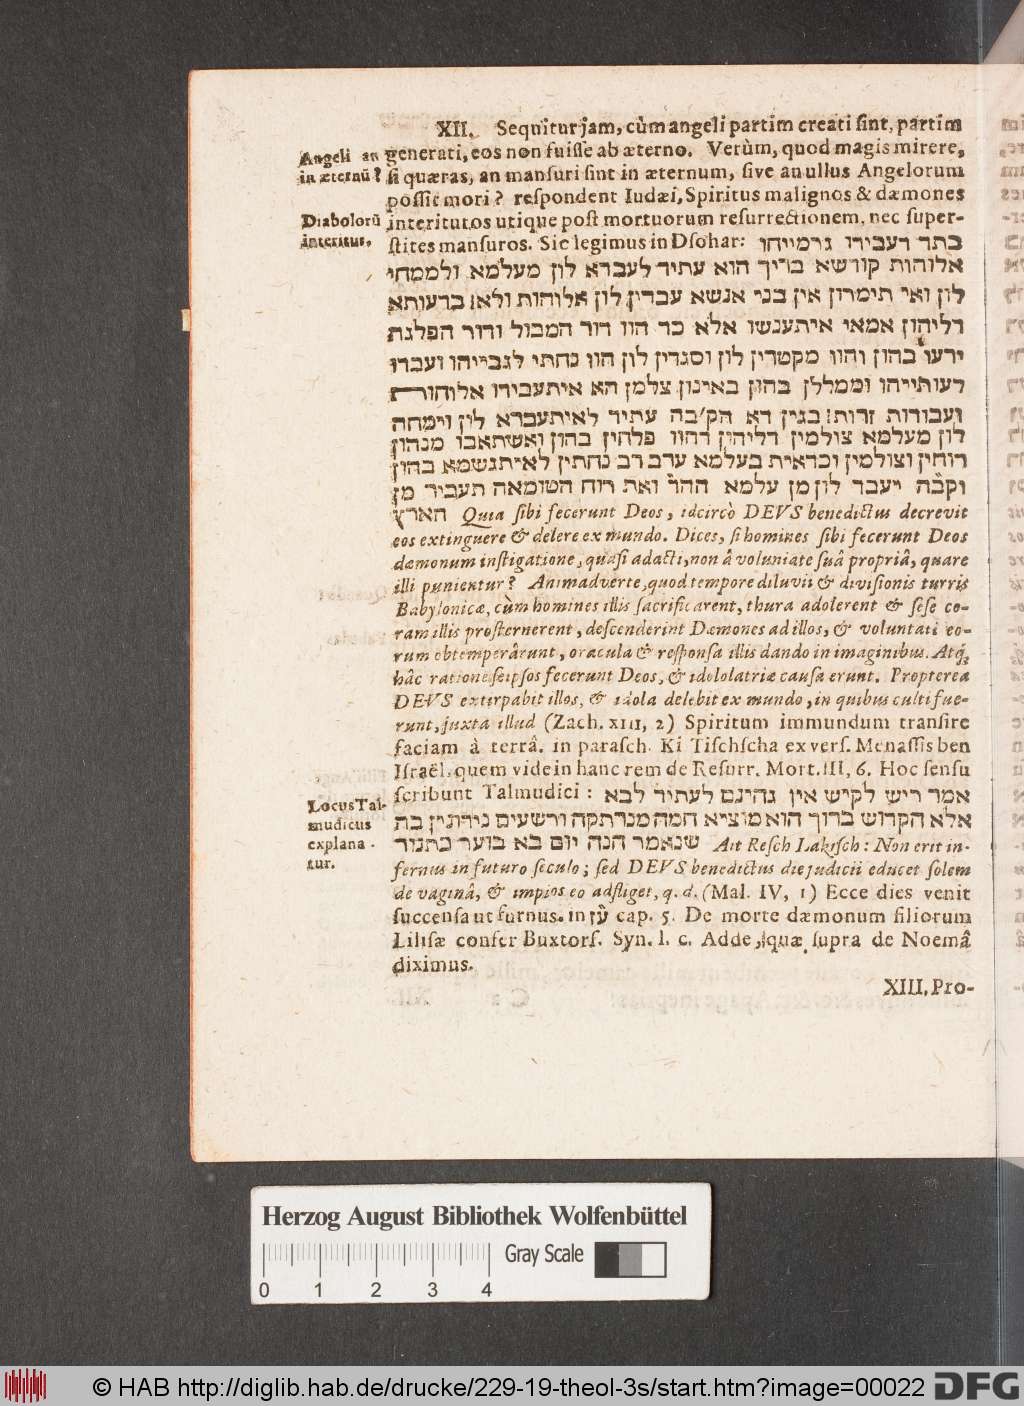 XII. Sequitur jam, cùm angeli partim creati sint, partim
Angeli an
in æternũ?
generati, eos non fuisse ab æterno. Verùm, quod magis mirere,
si quæras, an mansuri sint in æternum, sive an ullus Angelorum
possit mori? respondent Iudæi, Spiritus malignos & dæmones
Diabolorũ
interitus.
interituros utique post mortuorum resurrectionem, nec super-
stites mansuros. Sic legimus in Dsohar: בתר דעבידו גרמייהו
אלוהות קודשא בריך הוא עתיד לעברא לון מעלמא ולממחי
לון ואי תימרון אין בני אנשא עבדין לון אלוהות ולאו ברעותא
דליהון אמאי איתענשו אלא כד הוו דור המבול ודור הפלגת
ידעו בהון והוו מקטרין לון וסגדין לון הוו נחתי לגבייהו ועבדו
רעותייהו וממללן בהון באינון צלמן הא איתעבידו אלוהות
ועבודות זרות ובגין דא הק׳בה עתיד לאיתעברא לון וימחה
לון מעלמא צולמין דליהון דהוו פלחין בהון ואשתאבו מנהון
רוחין וצולמין וכדאית בעלמא ערב רב נחתין לאיתגשמא בהון
וקבה יעבר לון מן עלמא ההד ואת רוח הטומאה תעביר מן
הארץ Quia sibi fecerunt Deos, idcircò DEVS benedictus decrevit
eos extinguere & delere ex mundo. Dices, si homines sibi fecerunt Deos
dæmonum instigatione, quasi adacti, non à voluntate suâ propriâ, quare
illi punientur? Animadverte, quod tempore diluvii & divisionis turris
Babylonicæ, cùm homines illis sacrificarent, thura adolerent & sese co-
ram illis prosternerent, descenderint Dæmones ad illos, & voluntati eo-
rum obtemperârunt, oracula & responsa illis dando in imaginibus. Atq́;
hâc ratione seipsos fecerunt Deos, & idololatriæ causa erunt. Propterea
DEVS extirpabit illos, & idola delebit ex mundo, in quibus culti fue-
runt, juxta illud (Zach. XIII, 2) Spiritum immundum transire
faciam à terrâ. in parasch. Ki Tischscha ex vers. Menassis ben
Israël, quem vide in hanc rem de Resurr. Mort. III, 6. Hoc sensu
Locus Tal-
mudicus
explana-
tur.
scribunt Talmudici: אמר ריש לקיש אין גהינם לעתיד לבא
אלא הקדוש ברוך הוא מוציא חמה מנרתקה ורשעים נידונין בה
שנאמר הנה יום בא בוער כתנור Ait Resch Lakisch: Non erit in-
fernus in futuro seculo; sed DEVS benedictus die judicii educet solem
de vaginâ, & impios eo adfliget, q. d. (Mal. IV, 1) Ecce dies venit
succensa ut furnus. in עז cap. 5. De morte dæmonum filiorum
Lilisæ confer Buxtorf. Syn. l. c. Adde, quæ supra de Noemâ
diximus.
XIII. Pro-
Herzog August Bibliothek Wolfenbüttel
Gray Scale
0 1 2 3 4
© HAB http://diglib.hab.de/drucke/229-19-theol-3s/start.htm?image=00022 DFG